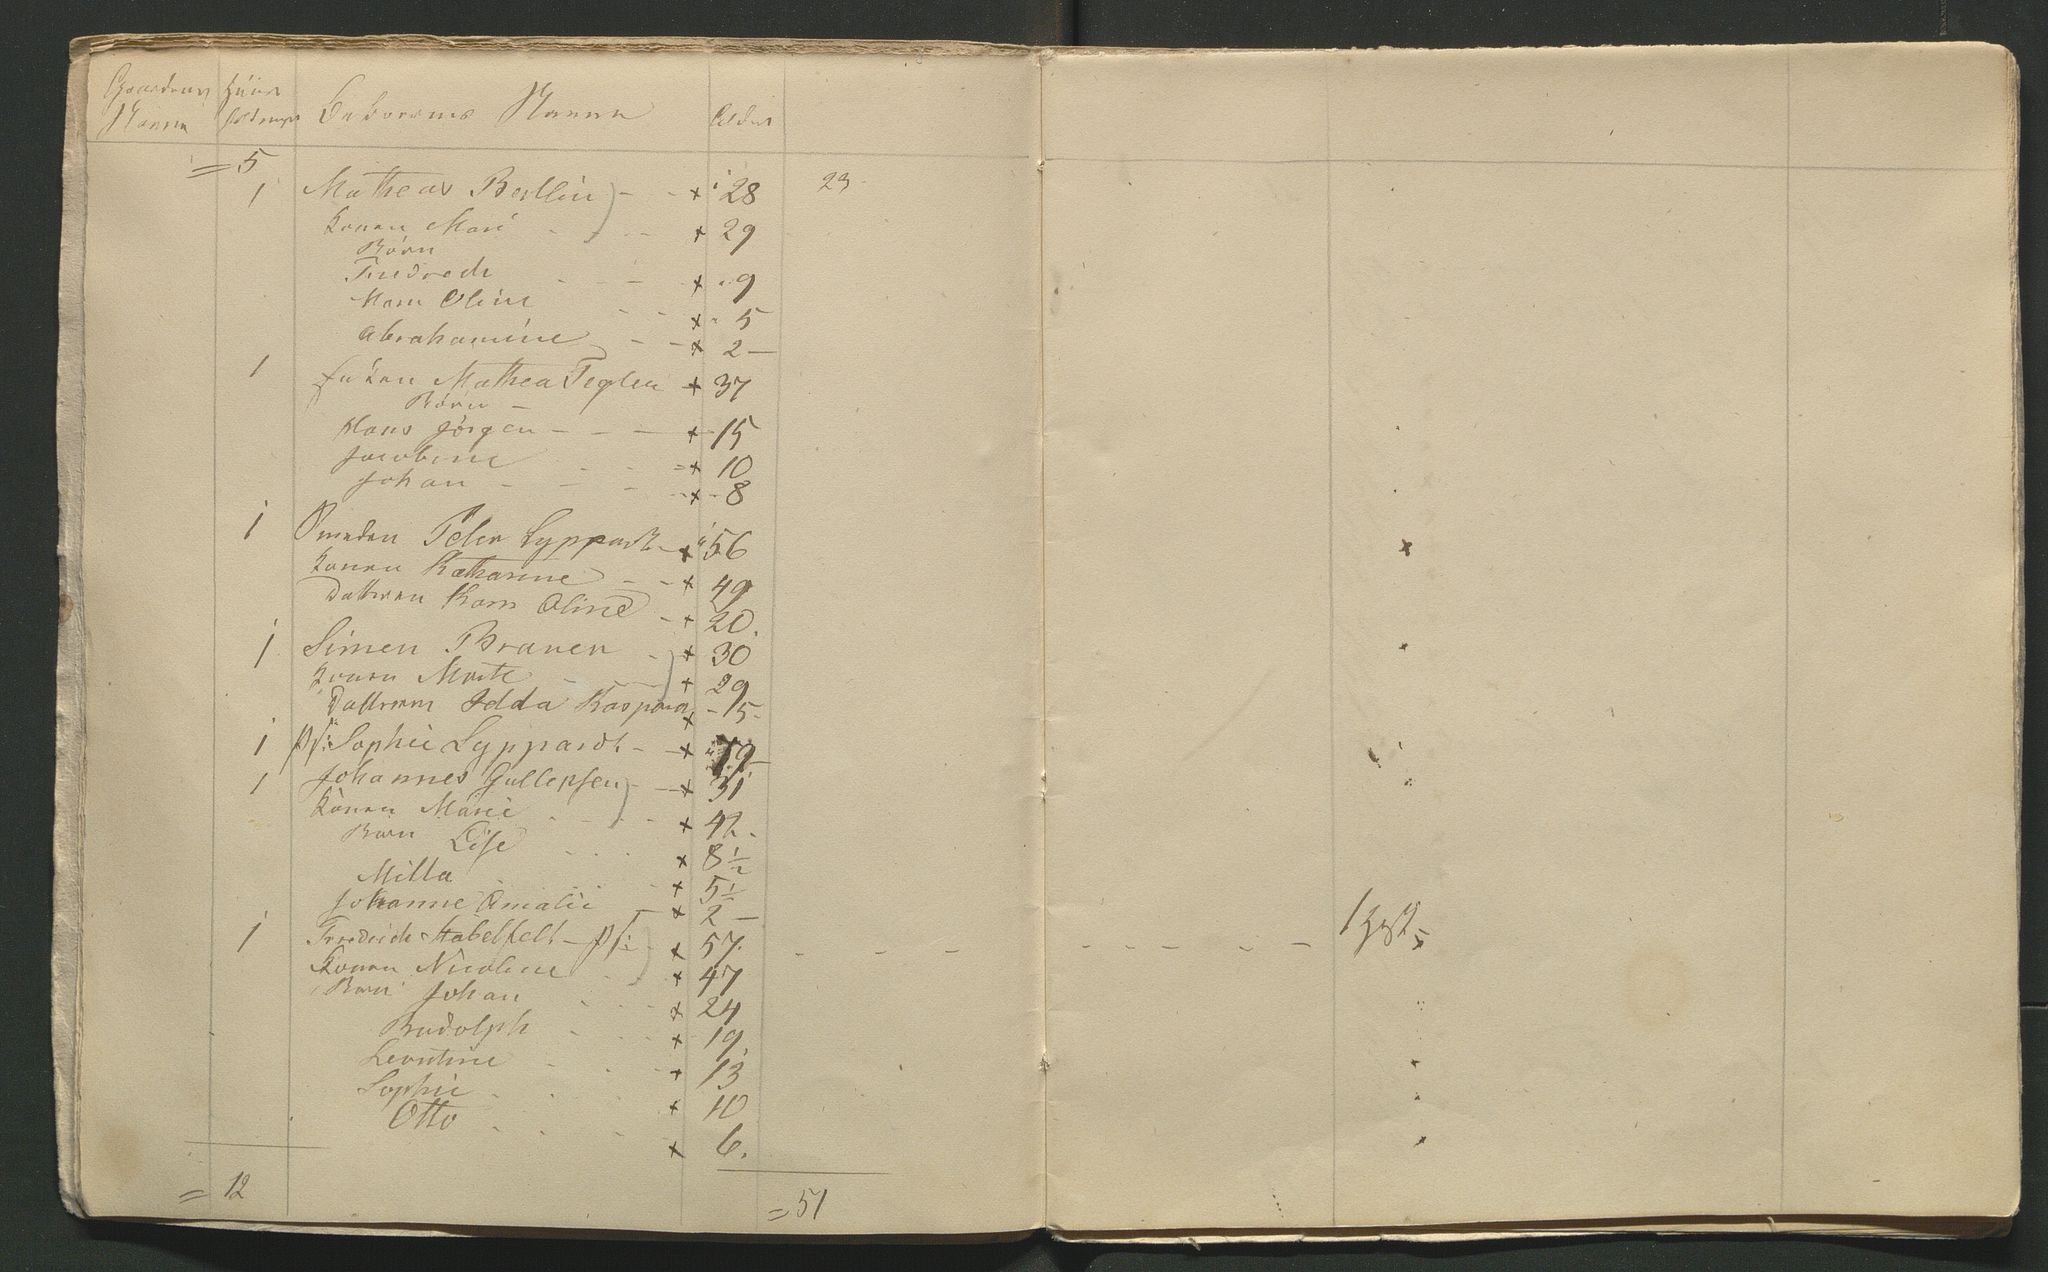 Gaardenes Huus Beboernes Navne Alder
Navne
= 5
1 Matheas Berllin - - x 28 23
Konen Mari - - x 29
Börn
Fredrech - - - x 9
Maren Oline - - x 5
Abrahamine - - x 2 -
1 Enken Mathea Teglen x 37
Börn -
Hans Jörgen - - - x 15
Jacobine - - = x 10
Johan - - - - x 8
1 Smeden Peter Lyppardt - x 56
Konen Katharine - - x 49
Datteren Karn Oline - x 20.
1 Simen Branen - x 30
Konen Marte - - x 29
Datteren Idda Kaspara x - 15 -
1 Sophie Lyppardt - - x 79 -
1 Johannes Gullepsen - - x 31
Konen Marie - - - x 42.
Barn Lise - - - x 8 1/2
Milla - - - x 5 1/2
Johanne Amalie - x 2 -
1 Fredrich Habelfelt - - x 57. - - - - - - - - 1 x
Konen Nicoline - x 47
Barn Johan - - - x 24
Rudolph - - - x 19.
Leontine - - - x 13
Sophie - - - x 10
Otto - - - x 6.
= 12 = 51